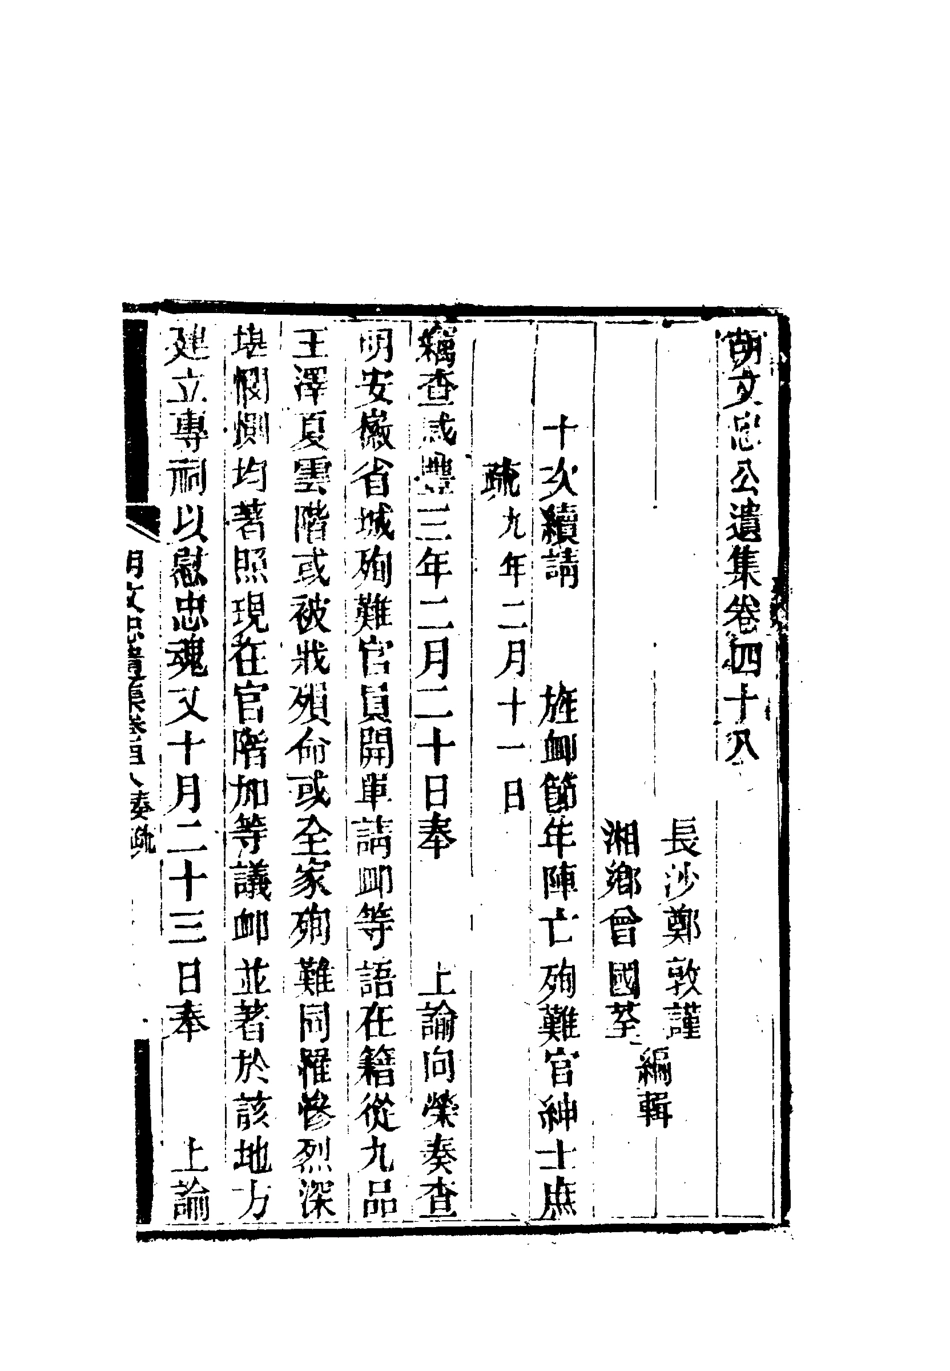 胡文忠公遺集卷四十八
長沙鄭敦謹
湘鄉曾國荃
編輯
十次續請　旌卹節年陣亡殉難官紳士庶
疏九年二月十一日
竊查咸豐三年二月二十日奉　上諭向榮奏查
明安徽省城殉難官員開單請卹等語在籍從九品
王澤夏雲階或被戕殞命或全家殉難同罹慘烈深
堪憫惻均著照現在官階加等議卹並著於該地方
建立專祠以慰忠魂又十月二十三日奉　上諭
胡文忠遺集卷四十八奏疏